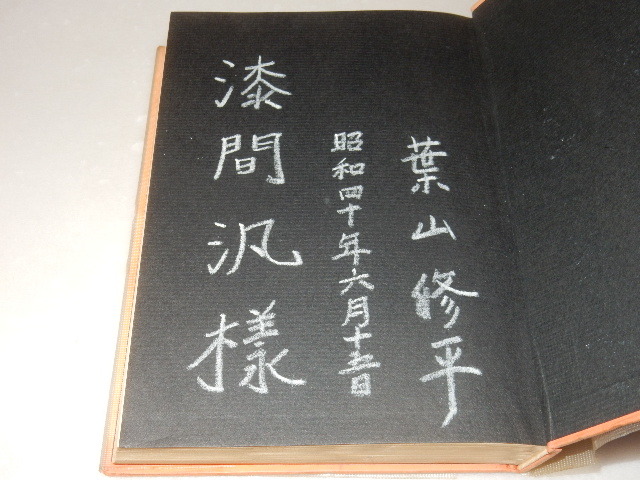 葉山修平
昭和四十年六月十五日
漆間汎様